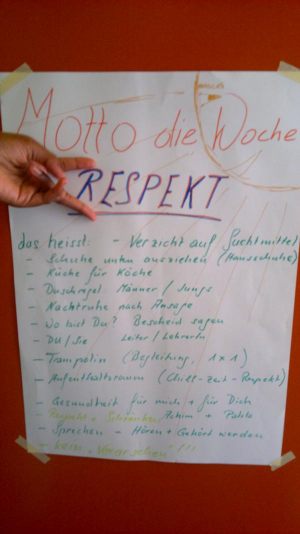 Motto die Woche
RESPEKT
das heisst: - Verzicht auf Suchtmittel
- Schuhe unten ausziehen (Hausschuhe)
- Küche für Köche
- Duschregel Männer / Jungs
- Nachtruhe nach Ansage
- Wo bist Du? Bescheid sagen
- Du/Sie Leiter/LehrerIn
- Tampolin (Begleitung, 1x1)
- Aufenthaltsraum (Chill-Zeit-Respekt)
- Gesundheit für mich + für Dich
- Respekt + Achim + Pablo
- Sprechen - Hören + Gehört werden
- kein "Verarschen" !!!